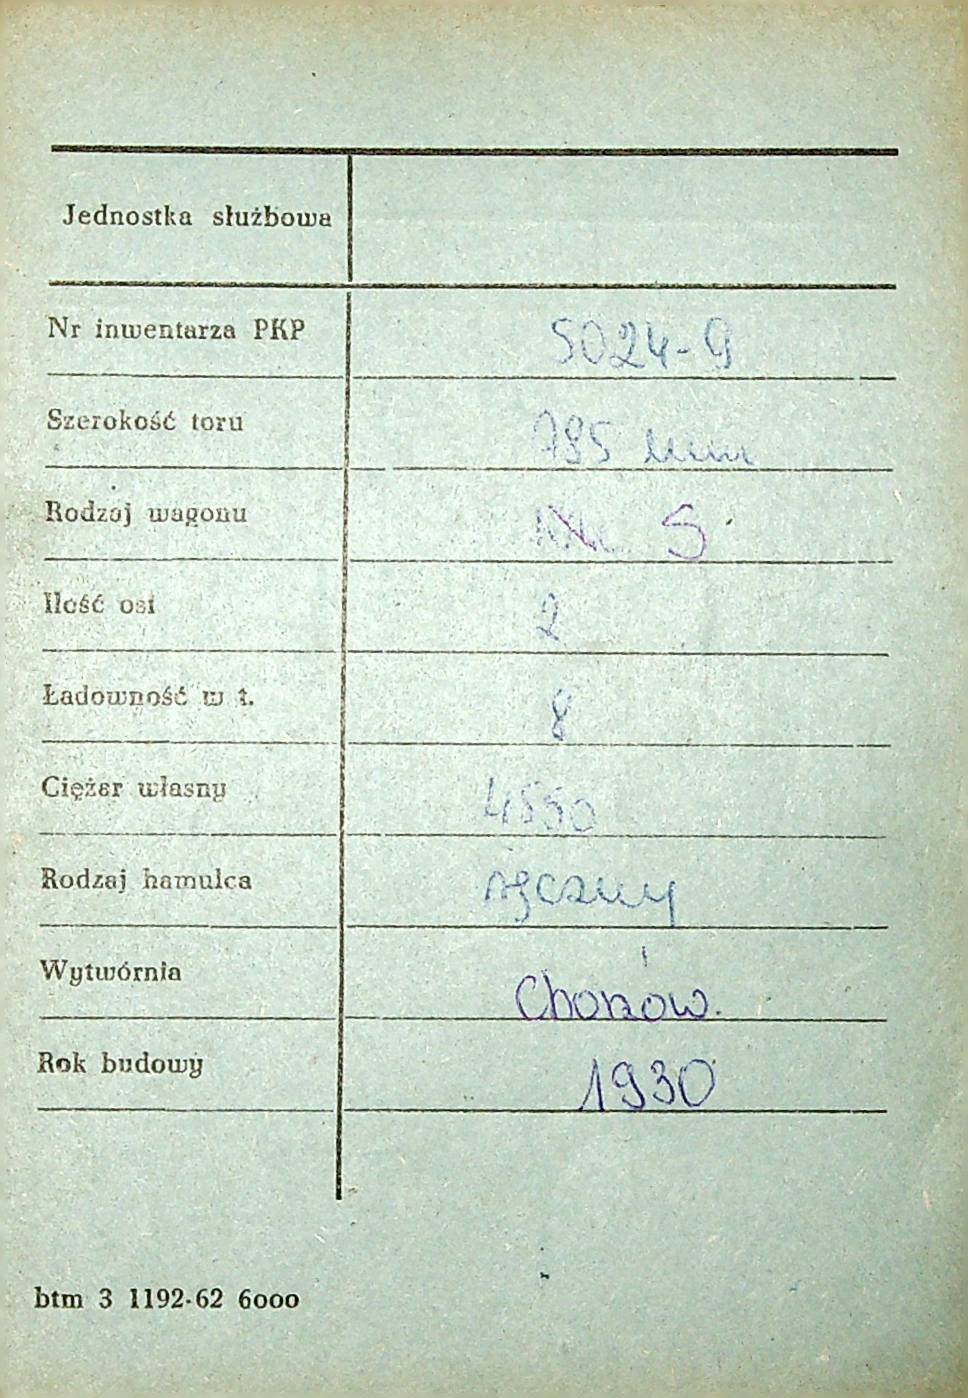 Jednostka służbowa
Nr inwentarza PKP 5024-9
Szerokość toru 785 mm
Rodzaj wagonu S
Ilość osi 2
Ładowność w t. 8
Ciężar własny 4550
Rodzaj hamulca ręczny
Wytwórnia Chorzów.
Rok budowy 1930
btm 3 1192-62 6000